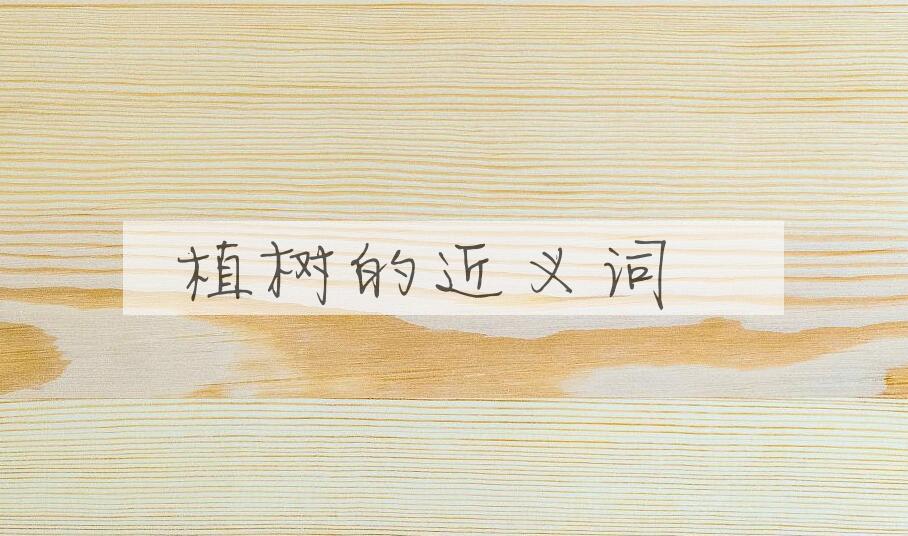 植树的近义词